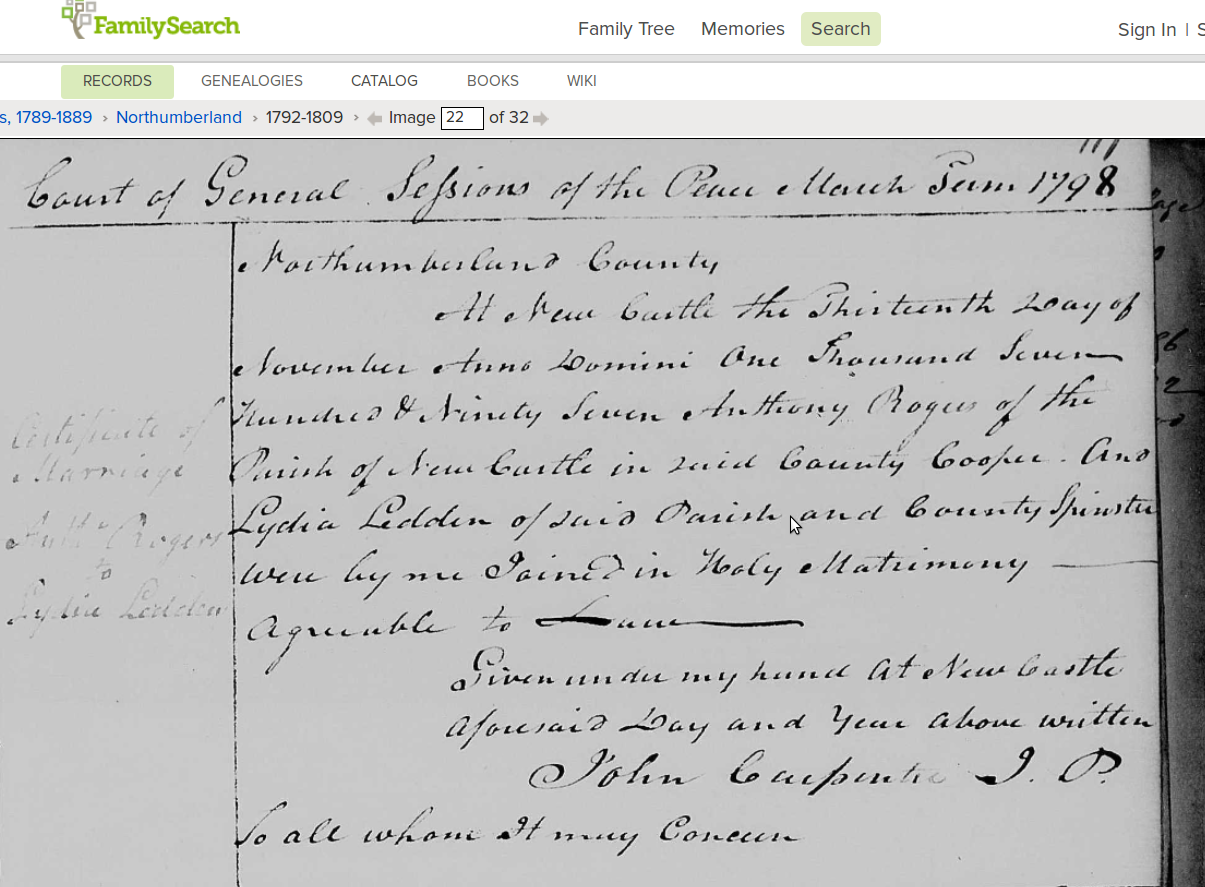 FamilySearch
Family Tree Memories Search Sign In | S
RECORDS GENEALOGIES CATALOG BOOKS WIKI
s, 1789-1889 › Northumberland › 1792-1809 › Image 22 of 32
Court of General Sessions of the Peace March Term 1798
Northumberland County
At New Castle the Thirteenth Day of
November Anno Domini One Thousand Seven
Hundred & Ninety Seven Anthony Rogers of the
Parish of New Castle in said County Cooper. And
Lydia Ledden of said Parish and County Spinster
were by me Joined in Holy Matrimony
Agreeable to Law
Given under my hand At New Castle
aforesaid Day and Year above written
John Carpenter J. P.
To all whom It may Concern
Certificate of
Marriage
Anth Rogers
to
Lydia Ledden